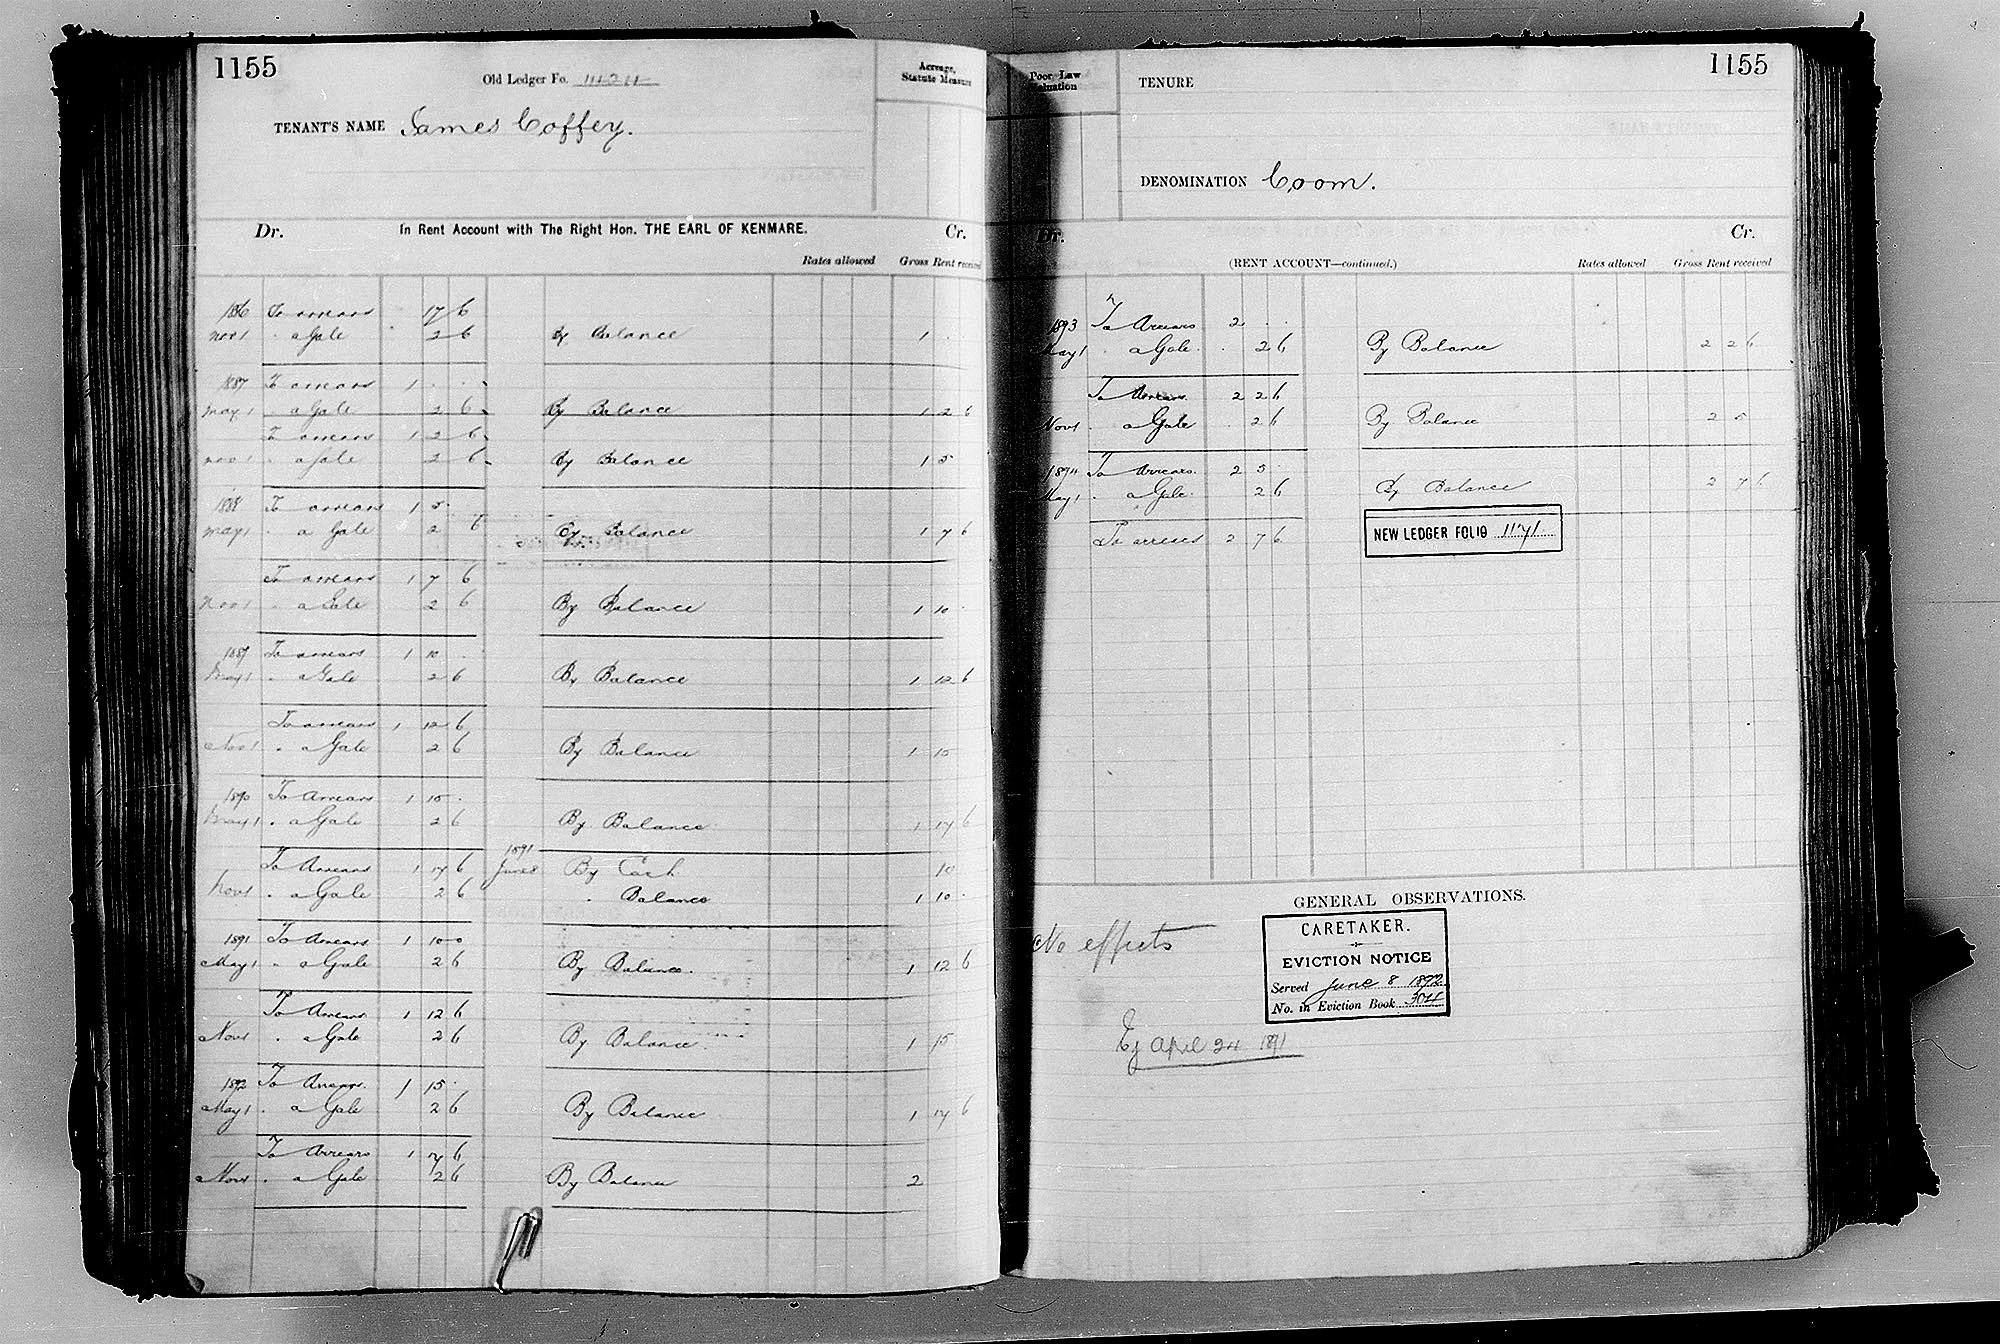 1155
Old Ledger Fo.
Acreage, Statute Measure
TENANT'S NAME James Coffey.
Dr. In Rent Account with The Right Hon. THE EARL OF KENMARE. Cr.
Rates allowed Gross Rent received
1886 To arrears 17 6
Nov 1 " a Gale 2 6 By Balance 1 . .
1887 To arrears 1 . .
May 1 " a Gale 2 6 By Balance 1 2 6
To arrears 1 2 6
Nov 1 " a Gale 2 6 By Balance 1 5
1888 To arrears 1 5 .
May 1 " a Gale 2 6 By Balance 1 7 6
To arrears 1 7 6
Nov 1 " a Gale 2 6 By Balance 1 10 .
1889 To arrears 1 10 .
May 1 " a Gale 2 6 By Balance 1 12 6
To arrears 1 12 6
Nov 1 " a Gale 2 6 By Balance 1 15
1890 To Arrears 1 15 .
May 1 " a Gale 2 6 By Balance 1 17 6
1891
To Arrears 1 17 6 June 8 By Cash 10
Nov 1 " a Gale 2 6 " Balance 1 10 .
1891 To Arrears 1 10 0
May 1 " a Gale 2 6 By Balance. 1 12 6
To Arrears 1 12 6
Nov 1 " a Gale 2 6 By Balance. 1 15
1892 To Arrears. 1 15 .
May 1 " a Gale 2 6 By Balance 1 17 6
To Arrears 1 17 6
Nov 1 " a Gale 2 6 By Balance 2
Poor Law Valuation
TENURE
1155
DENOMINATION Coom.
Dr. Cr.
(RENT ACCOUNT—continued.) Rates allowed Gross Rent received
1893 To Arrears 2 . .
May 1 " a Gale . 2 6 By Balance 2 2 6
To Arrears. 2 2 6
Nov 1 " a Gale . 2 6 By Balance 2 5
1894 To Arrears. 2 5 .
May 1 " a Gale. 2 6 By Balance 2 7 6
NEW LEDGER FOLIO 1171
To arrears 2 7 6
GENERAL OBSERVATIONS.
No effects
CARETAKER.
EVICTION NOTICE
Served June 8 1892
No. in Eviction Book
April 24 1891